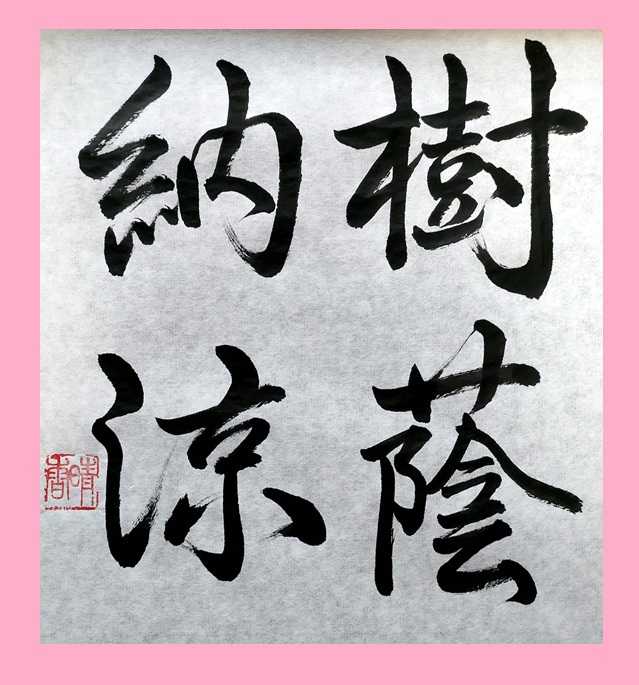 樹蔭
納涼
晴香